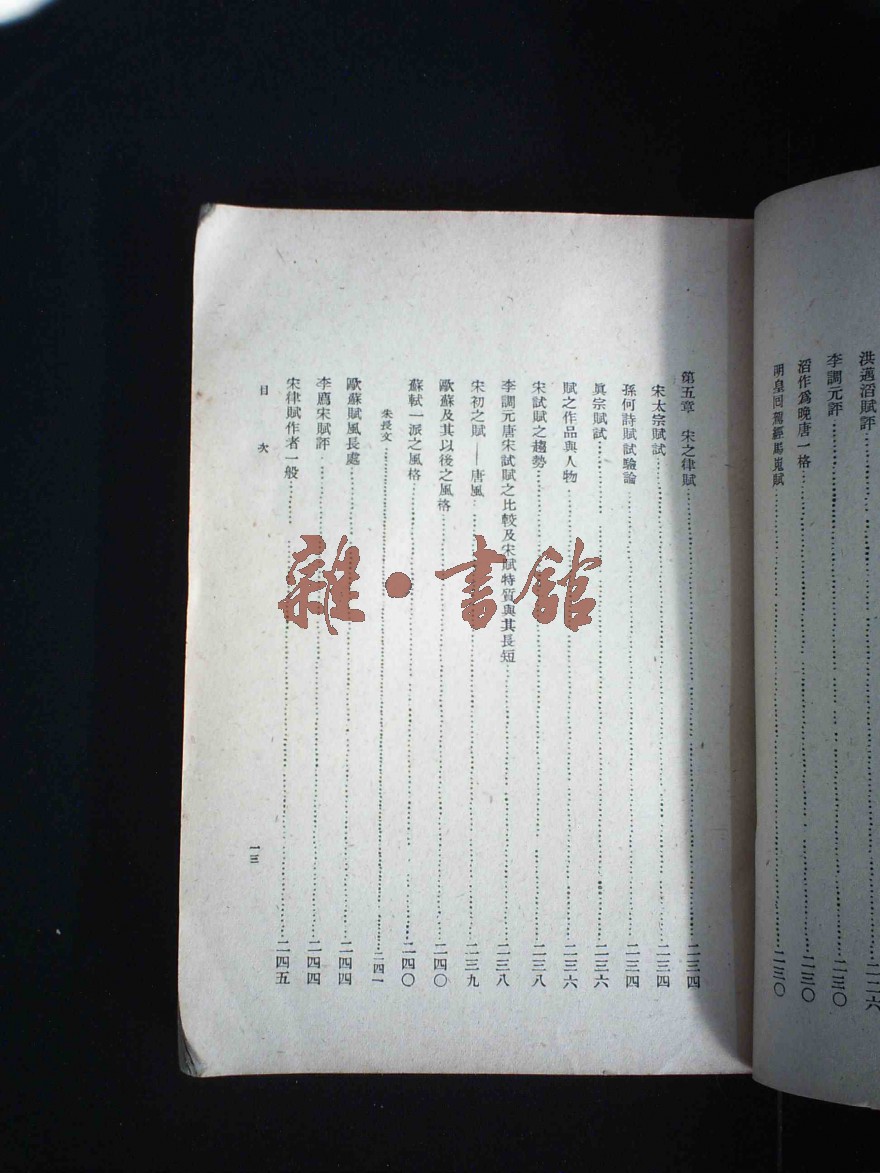 洪邁滔賦評……二二六
李調元評……二三〇
滔作爲晚唐一格……二三〇
明皇回駕經馬嵬賦……二三〇
第五章　宋之律賦……二三四
宋太宗賦試……二三四
孫何詩賦試驗論……二三四
眞宗賦試……二三六
賦之作品與人物……二三六
宋試賦之趨勢……二三八
李調元唐宋試賦之比較及宋賦特質與其長短……二三八
宋初之賦——唐風……二三九
歐蘇及其以後之風格……二四〇
蘇軾一派之風格……二四〇
朱長文……二四一
歐蘇賦風長處……二四四
李廌宋賦評……二四四
宋律賦作者一般……二四五
目次
一三
雜・書館